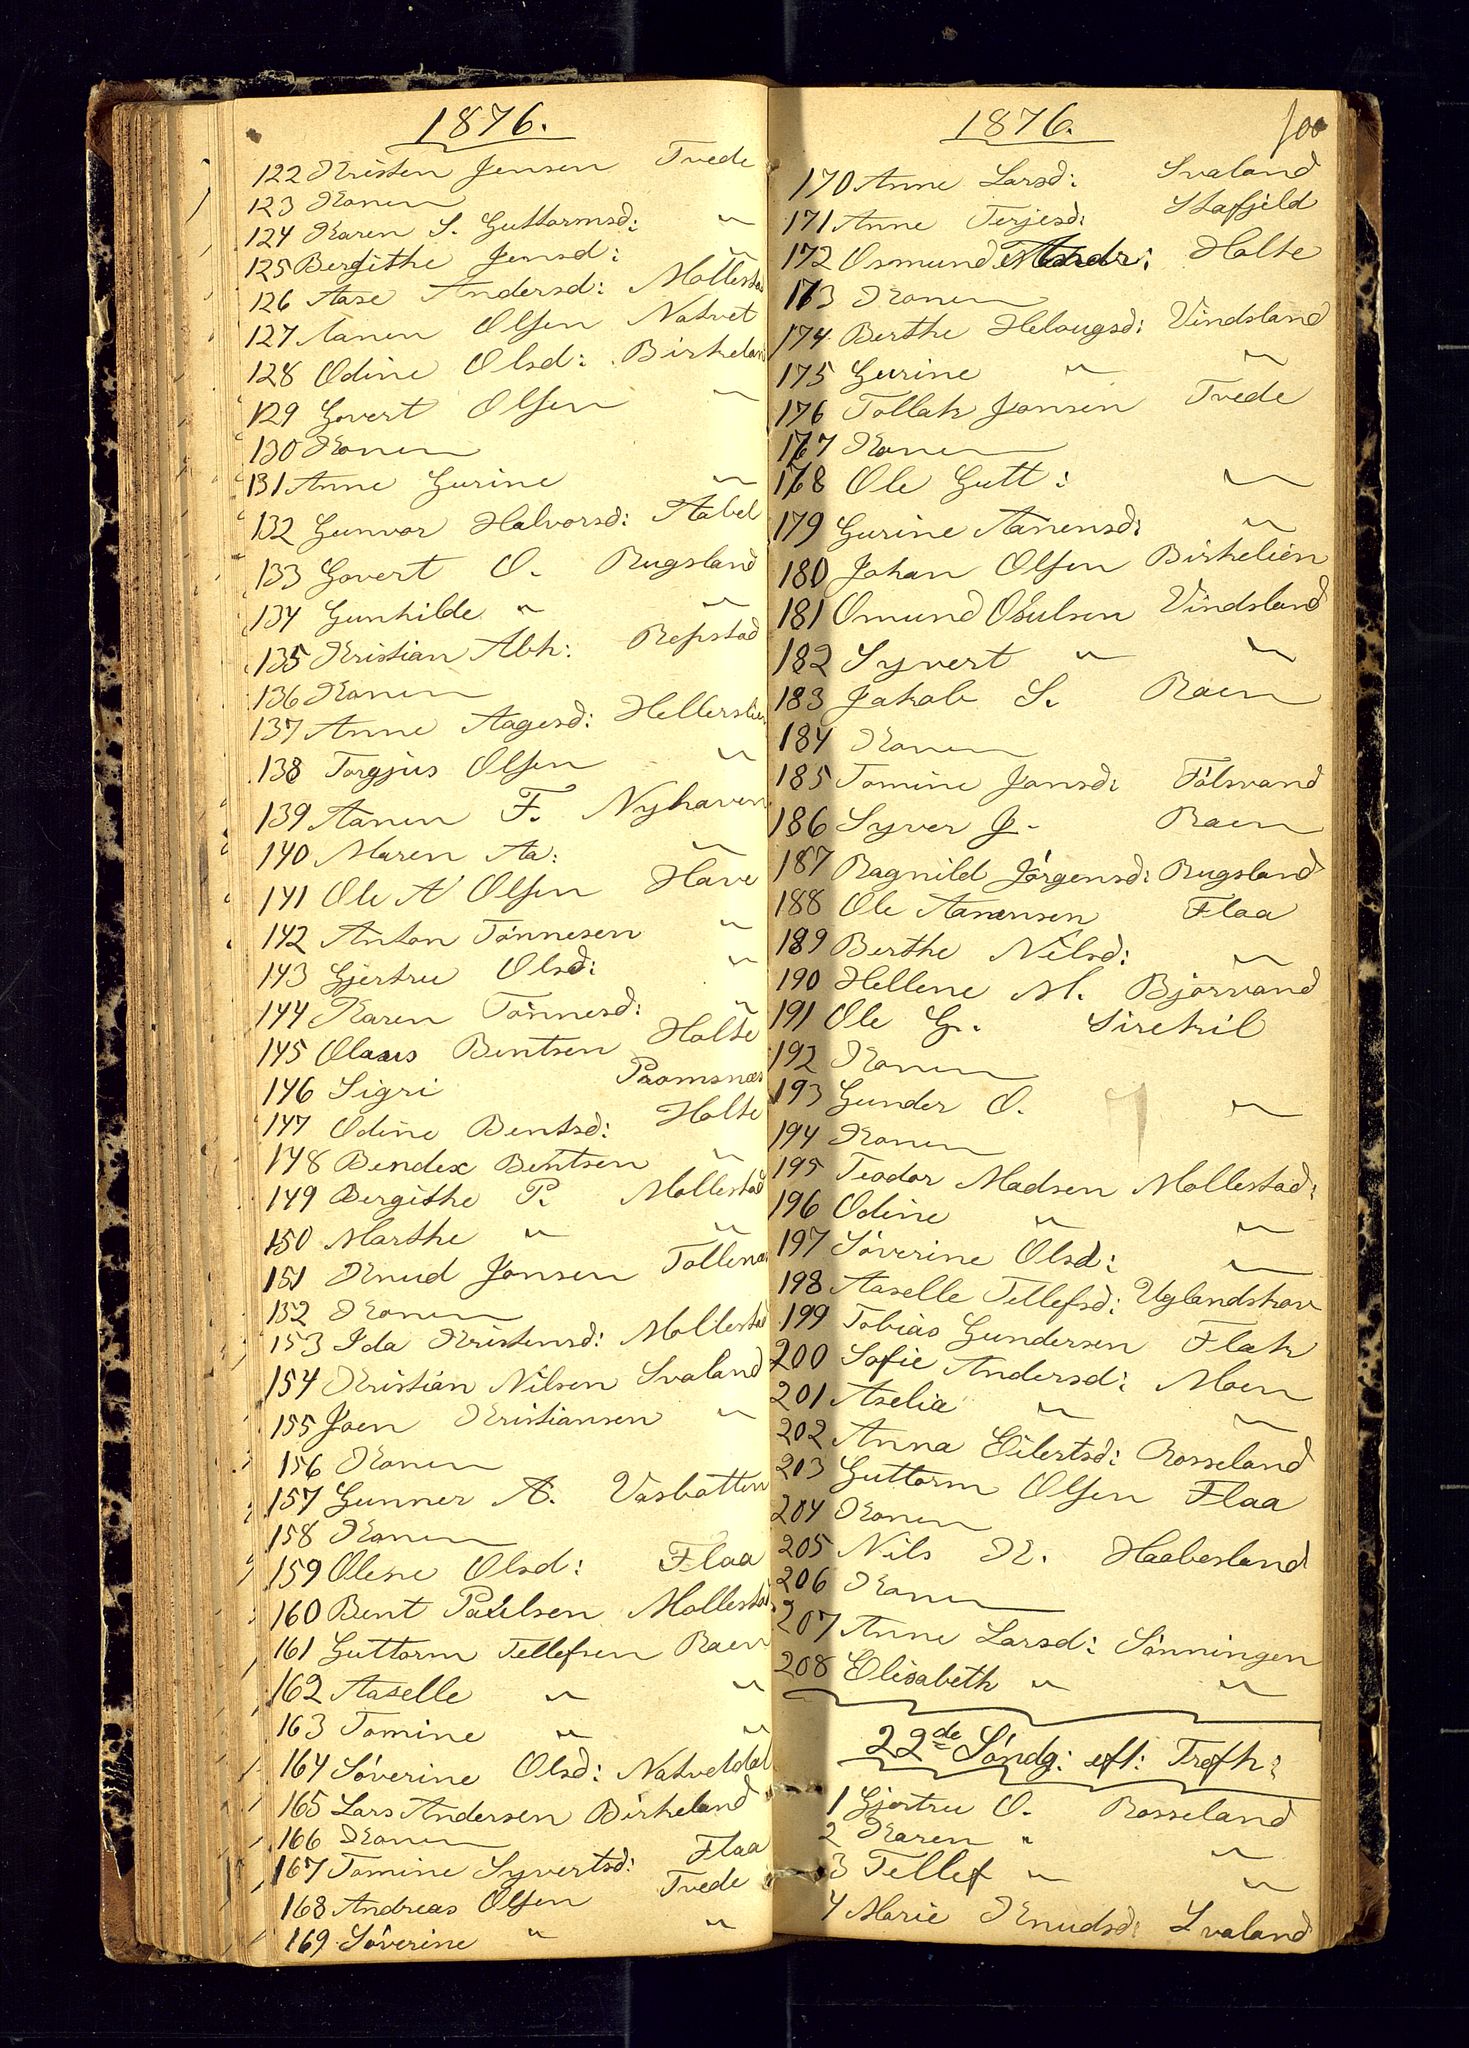 1876.
122 Kristen Jensen Tvede
123 Konen
124 Karen S. Guttormsd: "
125 Bergithe Jensd: "
126 Aase Andersd: Mollestad
127 Aanen Olsen Natvet
128 Odine Olsd: Birkeland
129 Govert Olsen "
130 Konen
131 Anne Gurine "
132 Gunvor Halvorsd: Aabel
133 Govert O. Rugsland
134 Gunhilde " "
135 Kristian Abh: Repstad
136 Konen
137 Anne Aagesd: Hellerslien
138 Torgjus Olsen "
139 Aanen F. Nyhaven
140 Maren Aa: "
141 Ole A Olsen Have
142 Anton Tönnesen "
143 Gjertru Olsd: "
144 Karen Tönnesd: "
145 Olaus Bentsen Holte
146 Sigri Promsnæs
147 Odine Bentsd: Holte
148 Bendex Bentsen "
149 Bergithe P. Mollestad
150 Marthe " "
151 Knud Jonsen Tollenæs
152 Konen
153 Ida Kristensd: Mollestad
154 Kristian Nilsen Svaland
155 Joen Kristiansen "
156 Konen
157 Gunner A. Vasbotten
158 Konen
159 Olene Olsd: Flaa
160 Bent Paulsen Mollestad
161 Guttorm Tellefsen Raen
162 Aaselle " "
163 Tomine " "
164 Söverine Olsd: Natvetdal
165 Lars Andersen Birkeland
166 Konen
167 Tomine Syvertsd: Flaa
168 Andreas Olsen Tvede
169 Söverine " "
1876. 100
170 Anne Larsd: Svaland
171 Anne Terjesd: Stafjeld
172 Osmund Holte
173 Konen
174 Berthe Helougsd: Vindsland
175 Gurine " "
176 Tollak Jonsen Tvede
177 Konen
178 Ole Gutt: "
179 Gurine Aanensd: "
180 Johan Olsen Birkelien
181 Osmund Osulsen Vindsland
182 Syvert " "
183 Jakob S. Raen
184 Konen
185 Tomine Jonsd: Fölsvand
186 Syver J. Raen
187 Ragnild Jörgensd: Rugsland
188 Ole Aanensen Flaa
189 Berthe Nilsd: "
190 Hellene M. Bjorvand
191 Ole G. Sirekil
192 Konen
193 Gunder O. "
194 Konen
195 Teodor Madsen Mollestad:
196 Odine " "
197 Söverine Olsd: "
198 Aaselle Tellefsd: Uglandskav
199 Tobias Gundersen Flak
200 Sofie Andersd: Moen
201 Aselia " "
202 Anna Eilertsd: Rosseland
203 Guttorm Olsen Flaa
204 Konen
205 Nils K. Haabesland
206 Konen
207 Anne Larsd: Sönningen
208 Elisabeth " "
22de Söndg: eft: Trefh:
1 Gjertru O. Rosseland
2 Karen " "
3 Tellef " "
4 Marie Knudsd: Svaland